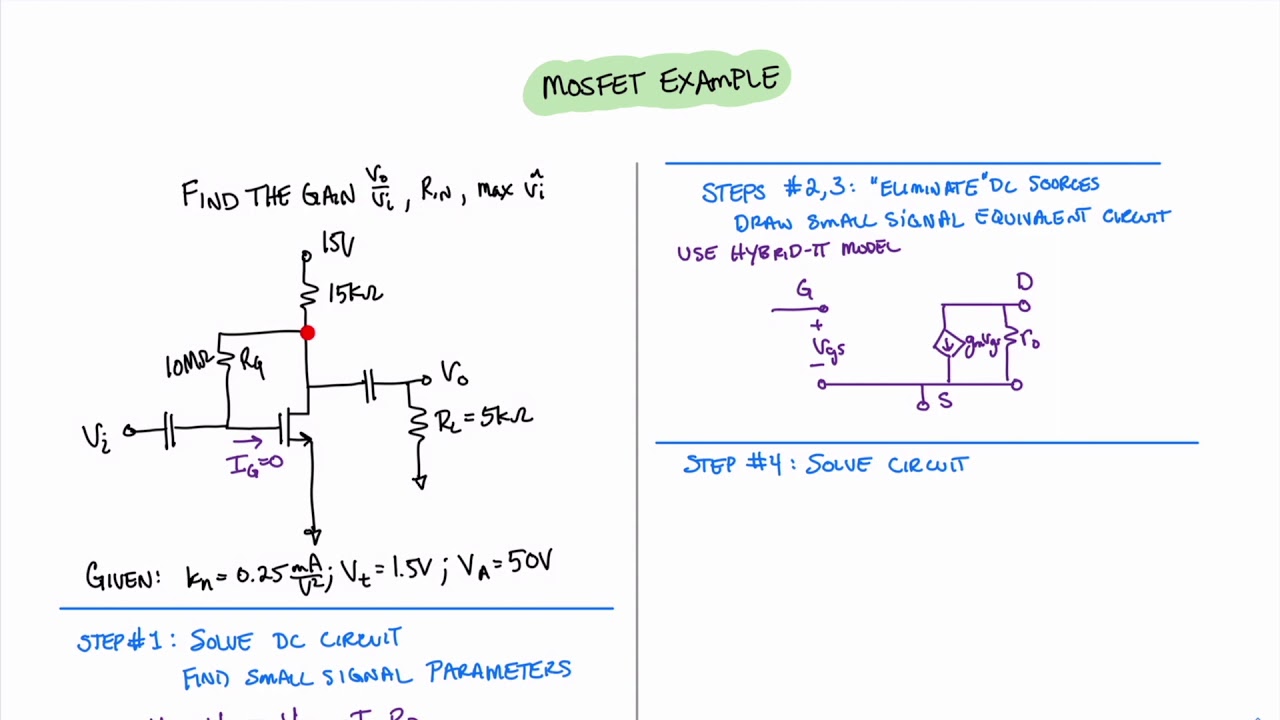 MOSFET EXAMPLE
FIND THE GAIN Vo/Vi, RIN, max v̂i
15V
15kΩ
10MΩ RG
Vo
Vi
RL = 5kΩ
IG=0
GIVEN: kn = 0.25 mA/V²; Vt = 1.5V; VA = 50V
STEP #1: SOLVE DC CIRCUIT
FIND SMALL SIGNAL PARAMETERS
STEPS #2,3: "ELIMINATE" DC SOURCES
DRAW SMALL SIGNAL EQUIVALENT CIRCUIT
USE HYBRID-π MODEL
G
D
+
Vgs
gmVgs
ro
−
S
STEP #4: SOLVE CIRCUIT